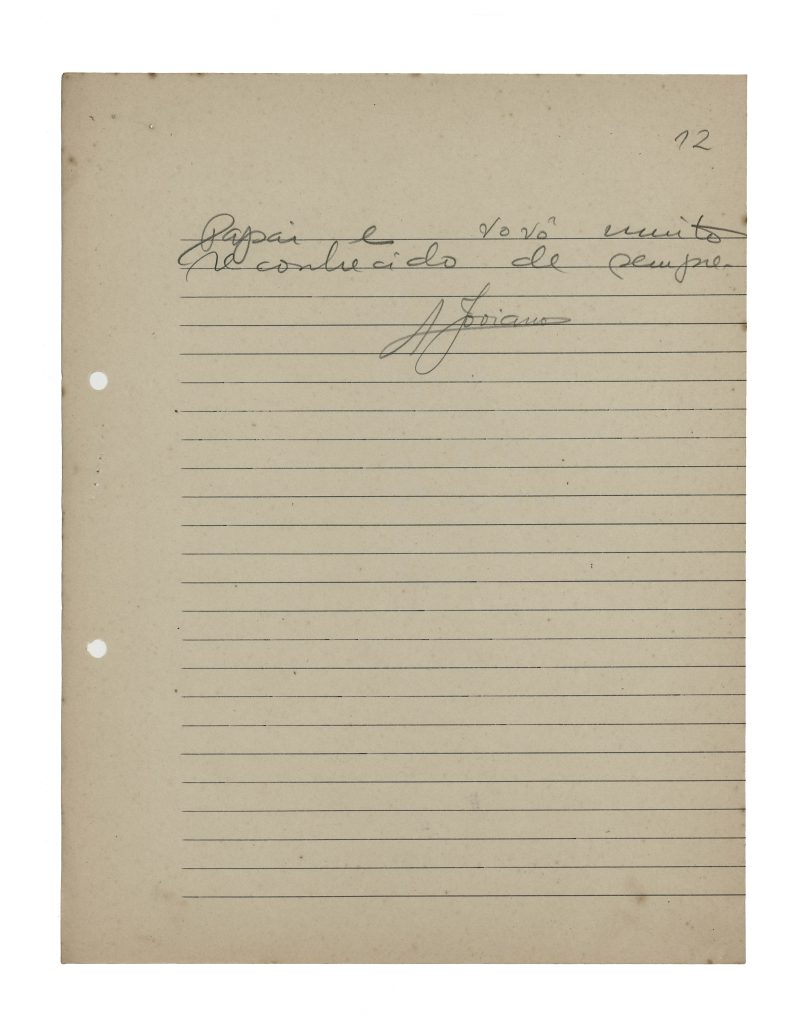 12
Papai e vovô muito
reconhecido de sempre.
A Joviano